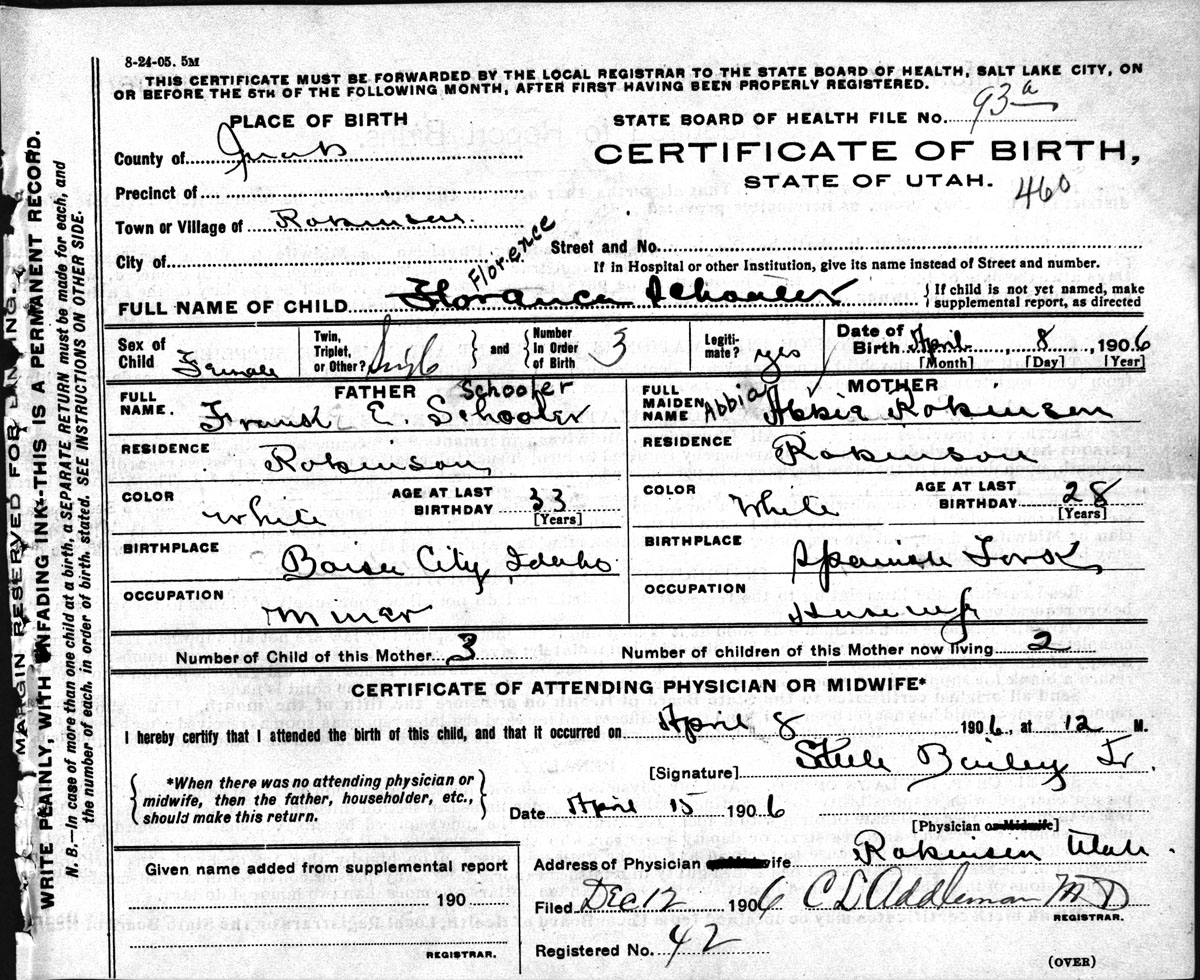 8-24-05. 5M
THIS CERTIFICATE MUST BE FORWARDED BY THE LOCAL REGISTRAR TO THE STATE BOARD OF HEALTH, SALT LAKE CITY, ON
OR BEFORE THE 5TH OF THE FOLLOWING MONTH, AFTER FIRST HAVING BEEN PROPERLY REGISTERED.
PLACE OF BIRTH
STATE BOARD OF HEALTH FILE No. 93a
County of Juab
CERTIFICATE OF BIRTH,
STATE OF UTAH. 460
Precinct of
Town or Village of Robinson
Street and No.
City of
If in Hospital or other Institution, give its name instead of Street and number.
Florence
FULL NAME OF CHILD Schooler
{If child is not yet named, make
supplemental report, as directed
Sex of
Child Female
Twin,
Triplet,
or Other?
} and {
Number
In Order
of Birth 3
Legiti-
mate? yes
Date of
Birth April, 8, 1906
[Month] [Day] [Year]
FATHER
FULL
NAME. Frank E. Schooler
Schoofer
MOTHER
FULL
MAIDEN
NAME Abbia Abbie Robinson
RESIDENCE Robinson
RESIDENCE Robinson
COLOR White
AGE AT LAST
BIRTHDAY 33
[Years]
COLOR White
AGE AT LAST
BIRTHDAY 28
[Years]
BIRTHPLACE Boise City, Idaho
BIRTHPLACE Spanish Fork
OCCUPATION Miner
OCCUPATION Housewife
Number of Child of this Mother 3
Number of children of this Mother now living 2
CERTIFICATE OF ATTENDING PHYSICIAN OR MIDWIFE*
I hereby certify that I attended the birth of this child, and that it occurred on April 8 1906, at 12 M.
{*When there was no attending physician or
midwife, then the father, householder, etc.,
should make this return.}
[Signature] Steele Bailey Jr.
Date April 15 1906
[Physician or Midwife]
Address of Physician wife Robinson Utah.
Given name added from supplemental report
190
REGISTRAR.
Filed Dec 12 1906 C L Addleman MD
REGISTRAR.
Registered No. 42
(OVER)
MARGIN RESERVED FOR
WRITE PLAINLY, WITH UNFADING INK--THIS IS A PERMANENT RECORD.
N. B.—In case of more than one child at a birth, a SEPARATE RETURN must be made for each, and
the number of each, in order of birth, stated. SEE INSTRUCTIONS ON OTHER SIDE.